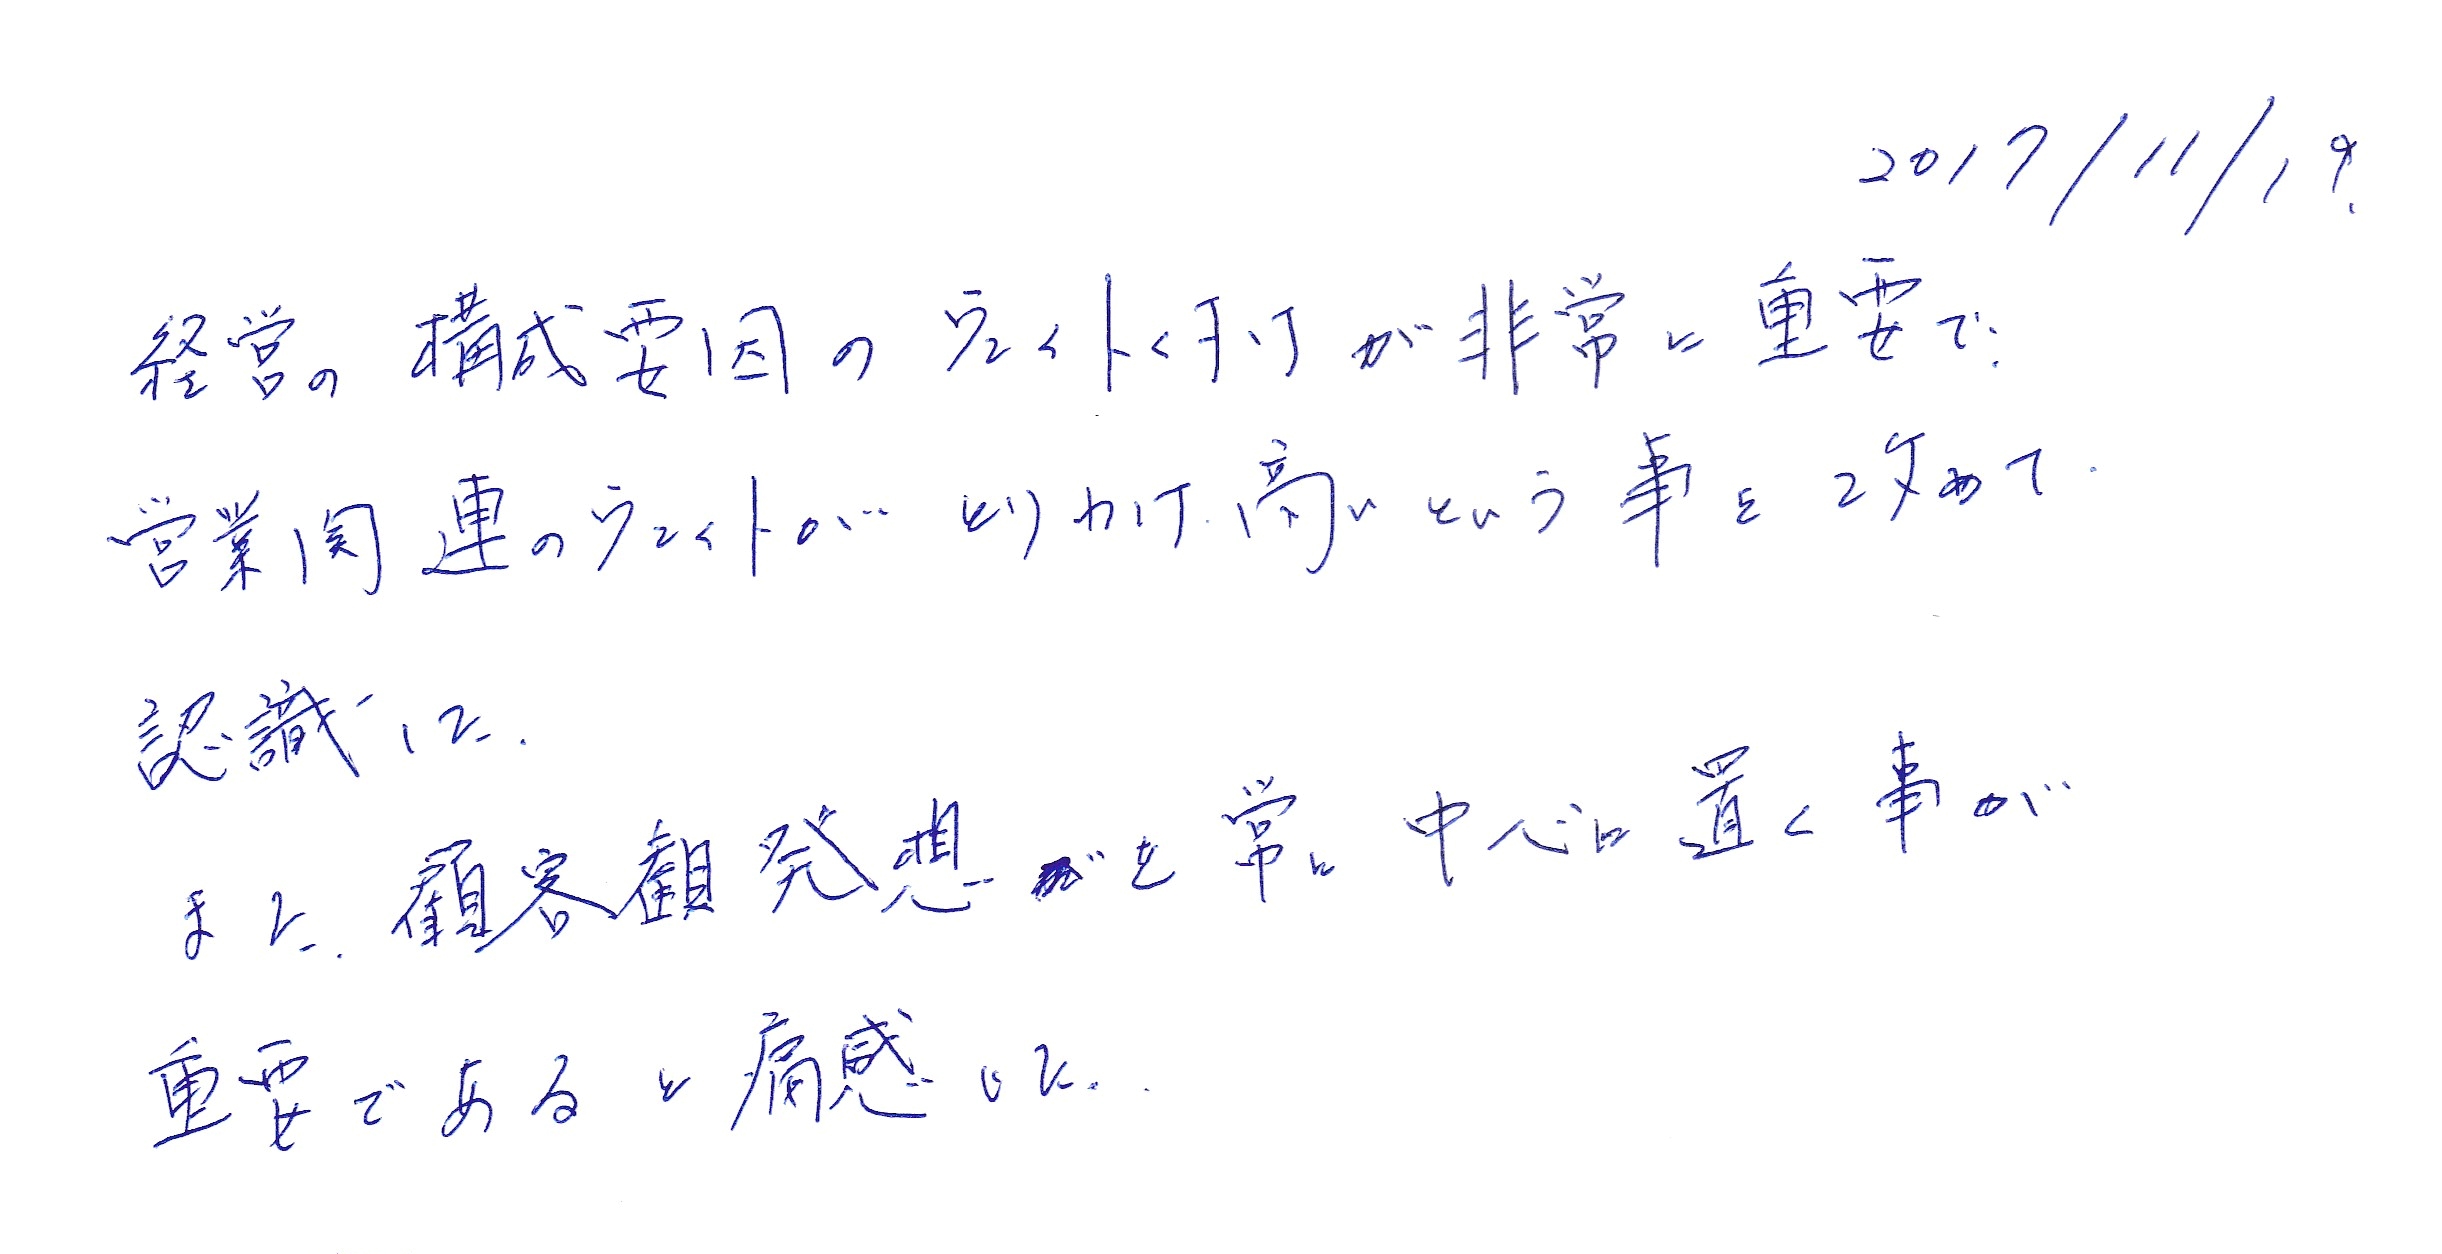 2017/11/19.
経営の構成要因のウェイト付けが非常に重要で.
営業関連のウェイトがとりわけ高いという事を改めて.
認識した.
また.顧客観発想を常に中心に置く事が
重要であると痛感した.